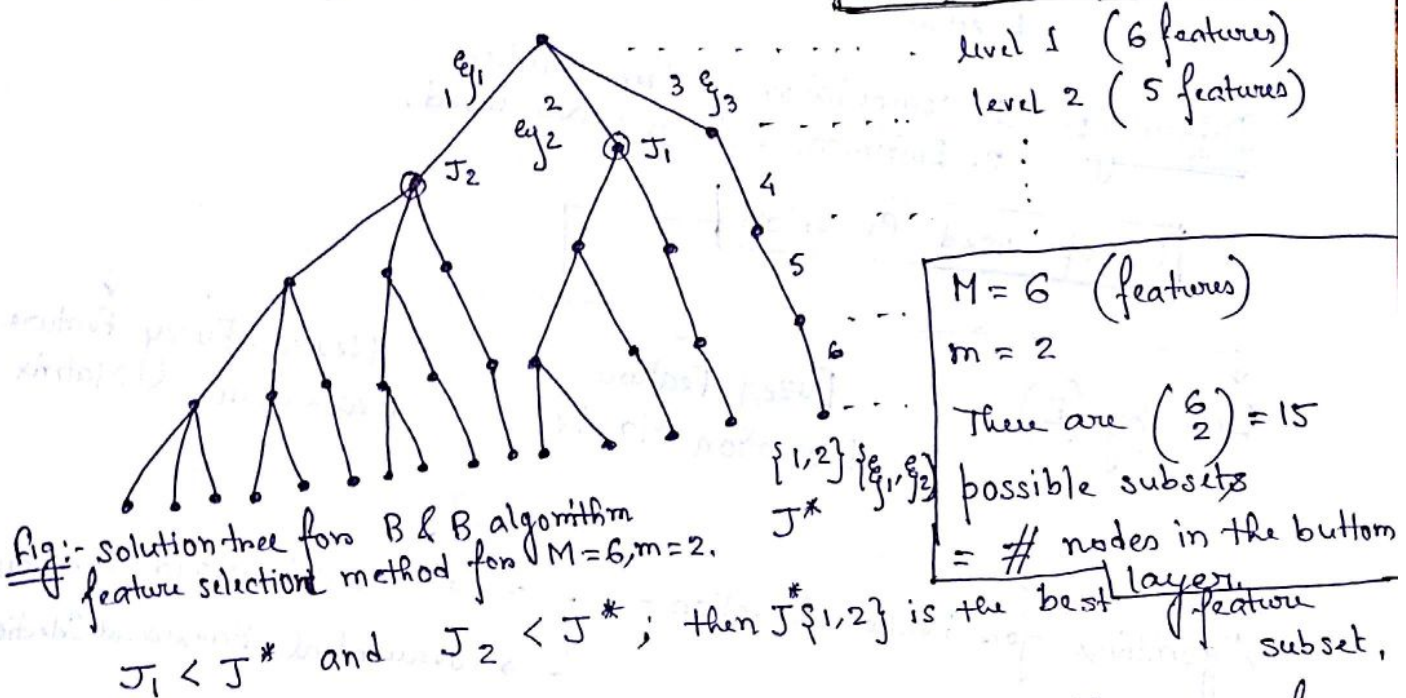 level 1 (6 features)
level 2 (5 features)
1 ξ1
2 ξ2
3 ξ3
J2
J1
4
5
6
{1,2} {ξ1, ξ2}
J*
M = 6 (features)
m = 2
There are (6 2) = 15
possible subsets
= # nodes in the buttom
layer.
Fig:- solution tree for B & B algorithm
feature selection method for M=6, m=2.
J1 < J* and J2 < J* ; then J*{1,2} is the best feature
subset,